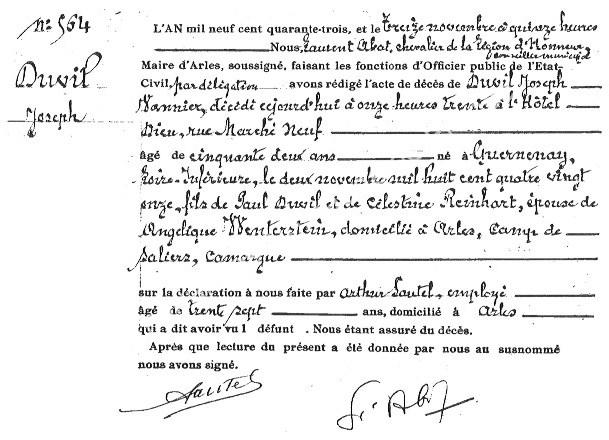 n° 564
Duvil
Joseph
L'AN mil neuf cent quarante-trois, et le treize novembre à quinze heures
Nous, Laurent Abat, chevalier de la Légion d'Honneur,
conseiller municipal
Maire d'Arles, soussigné, faisant les fonctions d'Officier public de l'Etat-
Civil, par délégation avons rédigé l'acte de décès de Duvil Joseph
Vannier, décédé cejourd'hui à onze heures trente à l'Hôtel
Dieu, rue Marché Neuf
âgé de cinquante deux ans né à Guernenay,
Loire-Inférieure, le deux novembre mil huit cent quatre vingt
onze, fils de Paul Duvil et de Célestine Reinhart, épouse de
Angélique Wenterstein, domicilié à Arles, Camp de
Saliers, Camargue
sur la déclaration à nous faite par Arthur Sautel, employé
âgé de trente sept ans, domicilié à Arles
qui a dit avoir vu l défunt . Nous étant assuré du décès.
Après que lecture du présent a élè donnée par nous au susnommé
nous avons signé.
Sautel